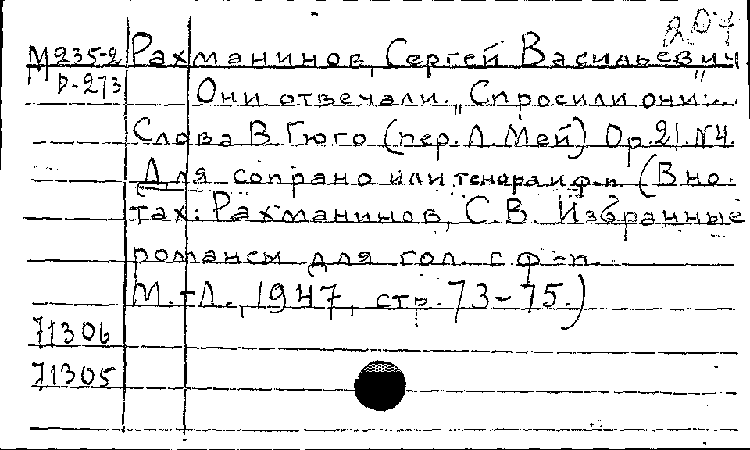 204
М235-2 Рахманинов, Сергей Васильевич
Р-273 Они отвечали. „Спросили они"...
Слова В. Гюго (пер. Л. Мей) Op. 21. №4.
Для сопрано или тенора и ф-п. (В но-
тах: Рахманинов, С.В. Избранные
романсы для гол. с ф-п.
М.-Л., 1947, стр. 73-75.)
71306
71305